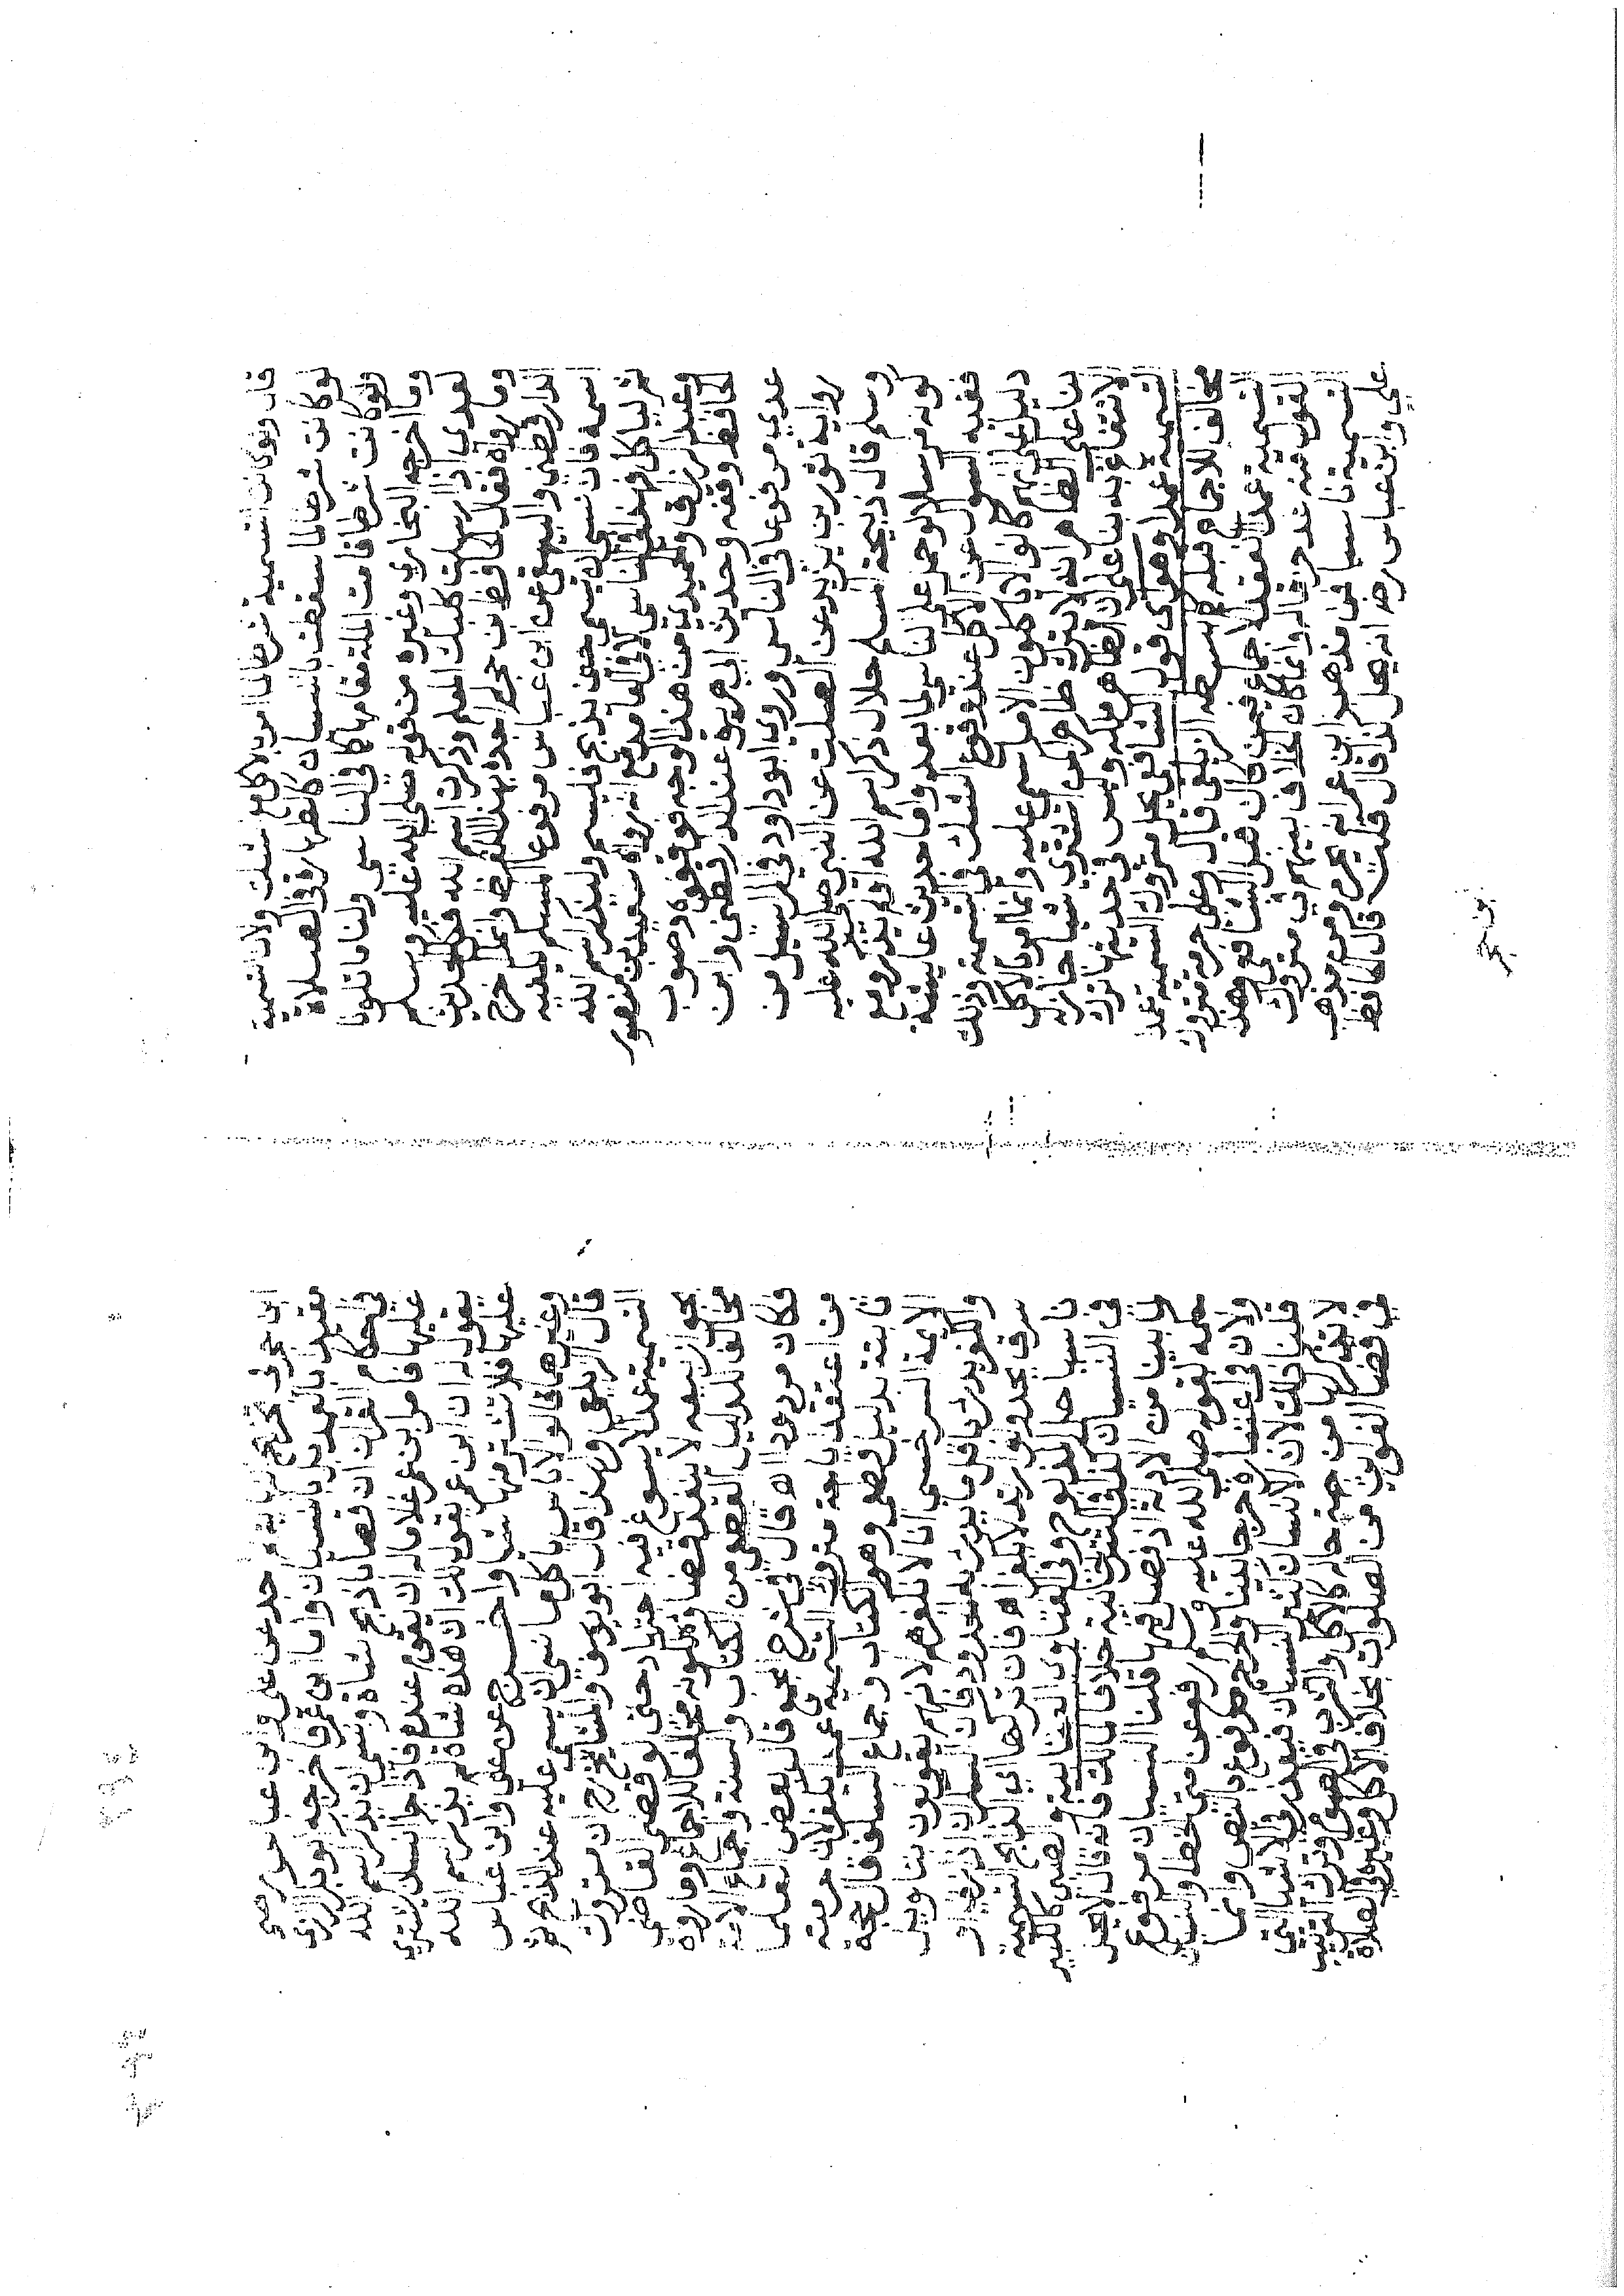 قال ولو كانت التسمية شرطا لما امر بالاكل مع شك ولان التسمية
لو كانت شرطا لما سقطت بالنسيان كالطهارة في الصلاة
ولو كانت شرطا قامت الملة مقامها كما في الناسي ولنا ما تلونا
وما اخرجه البخاري وغيره من قوله صلى الله عليه وسلم
لعدي اذا ارسلت كلبك المعلم وذكرت اسم الله فكل الحديث
وما رواه فقال الحافظ ابن حجر لم اجده بهذا اللفظ وانما اخرج
الدارقطني والبيهقي عن ابن عباس مرفوعا المسلم يكفيه
اسمه فان نسي ان يسمي حين يذبح فليسم وليذكر اسم الله
ثم لياكل فهذا في الناسي لا في العامد مع انه رواه سعيد بن منصور
وعبد الرزاق والحميدي من هذا الوجه فوقفوه وصوب
الحافظ وقفه وحديث ابي هريرة عند الدارقطني وابن
عدي مرفوعا في الناسي وروي ابو داود في المراسيل من
رواية ثور بن يزيد عن الصلت عن النبي صلى الله عليه
وسلم قال ذبيحة المسلم حلال ذكر اسم الله او لم يذكر ومع
كونه مرسلا يحمل على الناسي لما بعد واما حديث عايشة
ففيه السوال عن الاكل عند وقوع الشك في التسمية وذلك
دليل على انهم كانوا لا ياكلون الا ما سمي عليه وانما امر بالاكل
بنا على الظاهر انه لا يترك ظاهرا كمن اشتري شيئا جاز له
الانتفاع به بنا على ان الظاهر ملكه وليس في حديثها ترك
التسمية عمدا وهو اي قول الشافعي بحل متروك التسمية عمدا
مخالف للاجماع قبله كما بسطه الزيلعي قال وعلى حرمة متروك
التسمية عمدا انعقد الاجماع فيمن كان قبل الشافعي وهذا
القول منه عد خرقا له وانما كان الخلاف بينهم في متروك
التسمية ناسيا فمن مذهب ابن عمر انه يحرم ومن مذهب
علي وابن عباس رضه انه يحل كذا قال قلت قال الحافظ
ابن حجر في تخريج الهداية لم اجده عن علي وابن عباس رضي
تقييد بالعمد بل بالنسيان واما ابن عمر فاخرجه ابو بكر الرازي
في احكام القران ان قصابا ذبح شاة ونسي ان يذكر اسم الله
عليها فامر ابن عمر غلاما له ان يقوم عنده فاذا جا انسان يشتري
يقول له ان ابن عمر يقول لك ان هذه شاة لم يذكر اسم الله
عليها فلا تشتر منها شيا واخرج عن علي وابن عباس
وغيرهما قالوا لا باس باكل ما نسي ان يسمي عليه عند الذبح
قال الزيلعي ولهذا قال ابو يوسف والمشايخ رح ان متروك
التسمية عمدا لا يسوغ فيه اجتهاد حتى لو قضى القاضي
بجواز بيعه لا ينفذ قضاوه لكونه مخالفا للاجماع وما رووه
مخالف للدليل القطعي من الكتاب والسنة واجماع الامة
فكان مردودا اه قال في شرح المجمع قال بعض العلما
من اعتقد اباحة متروك التسمية عمدا يكفر لان حرمته
ثابتة بدليل قطعي وهو الكتاب واجماع السلف قال شمس
الايمة السرخسي انا لا نكفرهم لانهم يقولون بتاويل
والكفر يدرا باقل ما يدرا به الحدود فان السكران اذا
سرق يحد ولو ارتد لا يكفر اه فان تركها اي الذابح التسمية
ناسيا حل المذبوح وفي الفتاوى العتابية والصبي كالكبير
في النسيان كذا في التترخانية خلافا لمالك فانه قال لا يحل
لما بينا من الادلة اذ لا فصل فيها قلنا النسيان مرفوع
حكمه لقوله صلى الله عليه وسلم رفع عن امتي الخطا والنسيان
ولان في اعتباره حرجا بينا والحرج مدفوع بالنص وانما
قلنا ذلك لان الانسان كثير النسيان فيعذر في الاشيا التي
لا تذكير لها من جهة حاله كالاكل والشرب في الصوم وترك الترتيب
في قضا الفوايت من الصلوات بخلاف الاكل وغيره في الصلاة